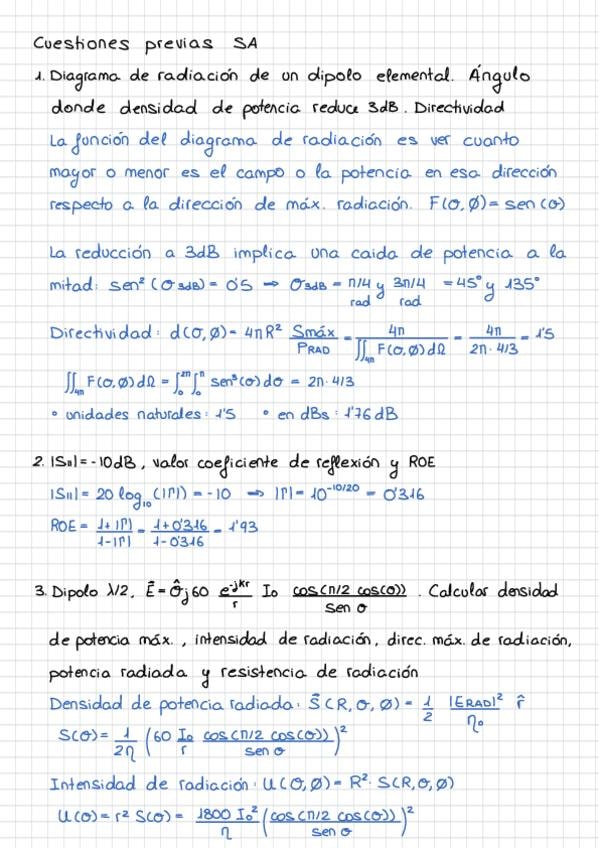 Cuestiones previas SA
1. Diagrama de radiación de un dipolo elemental. Ángulo
donde densidad de potencia reduce 3dB. Directividad
La función del diagrama de radiación es ver cuanto
mayor o menor es el campo o la potencia en esa dirección
respecto a la dirección de máx. radiación. F(θ,Ø) = sen(θ)
La reducción a 3dB implica una caida de potencia a la
mitad: sen²(θ3dB) = 0'5 → θ3dB = π/4 rad y 3π/4 rad = 45° y 135°
Directividad: d(θ,Ø) = 4πR² Smáx/PRAD = 4π/∬4π F(θ,Ø)dΩ = 4π/2π·4/3 = 1'5
∬4π F(θ,Ø)dΩ = ∫₀²π ∫₀π sen³(θ)dθ = 2π·4/3
• unidades naturales: 1'5 • en dBs: 1'76dB
2. |S11| = -10dB, valor coeficiente de reflexión y ROE
|S11| = 20 log10 (|Γ|) = -10 → |Γ| = 10^-10/20 = 0'316
ROE = 1+|Γ|/1-|Γ| = 1+0'316/1-0'316 = 1'93
3. Dipolo λ/2, E⃗ = θ̂j60 e^-jkr/r I0 cos(π/2 cos(θ))/sen θ. Calcular densidad
de potencia máx., intensidad de radiación, direc. máx. de radiación,
potencia radiada y resistencia de radiación
Densidad de potencia radiada: S⃗(R,θ,Ø) = 1/2 |ERAD|²/η0 r̂
S(θ) = 1/2η (60 I0/r cos(π/2 cos(θ))/sen θ)²
Intensidad de radiación: U(θ,Ø) = R²·S(R,θ,Ø)
U(θ) = r² S(θ) = 1800 I0²/η (cos(π/2 cos(θ))/sen θ)²